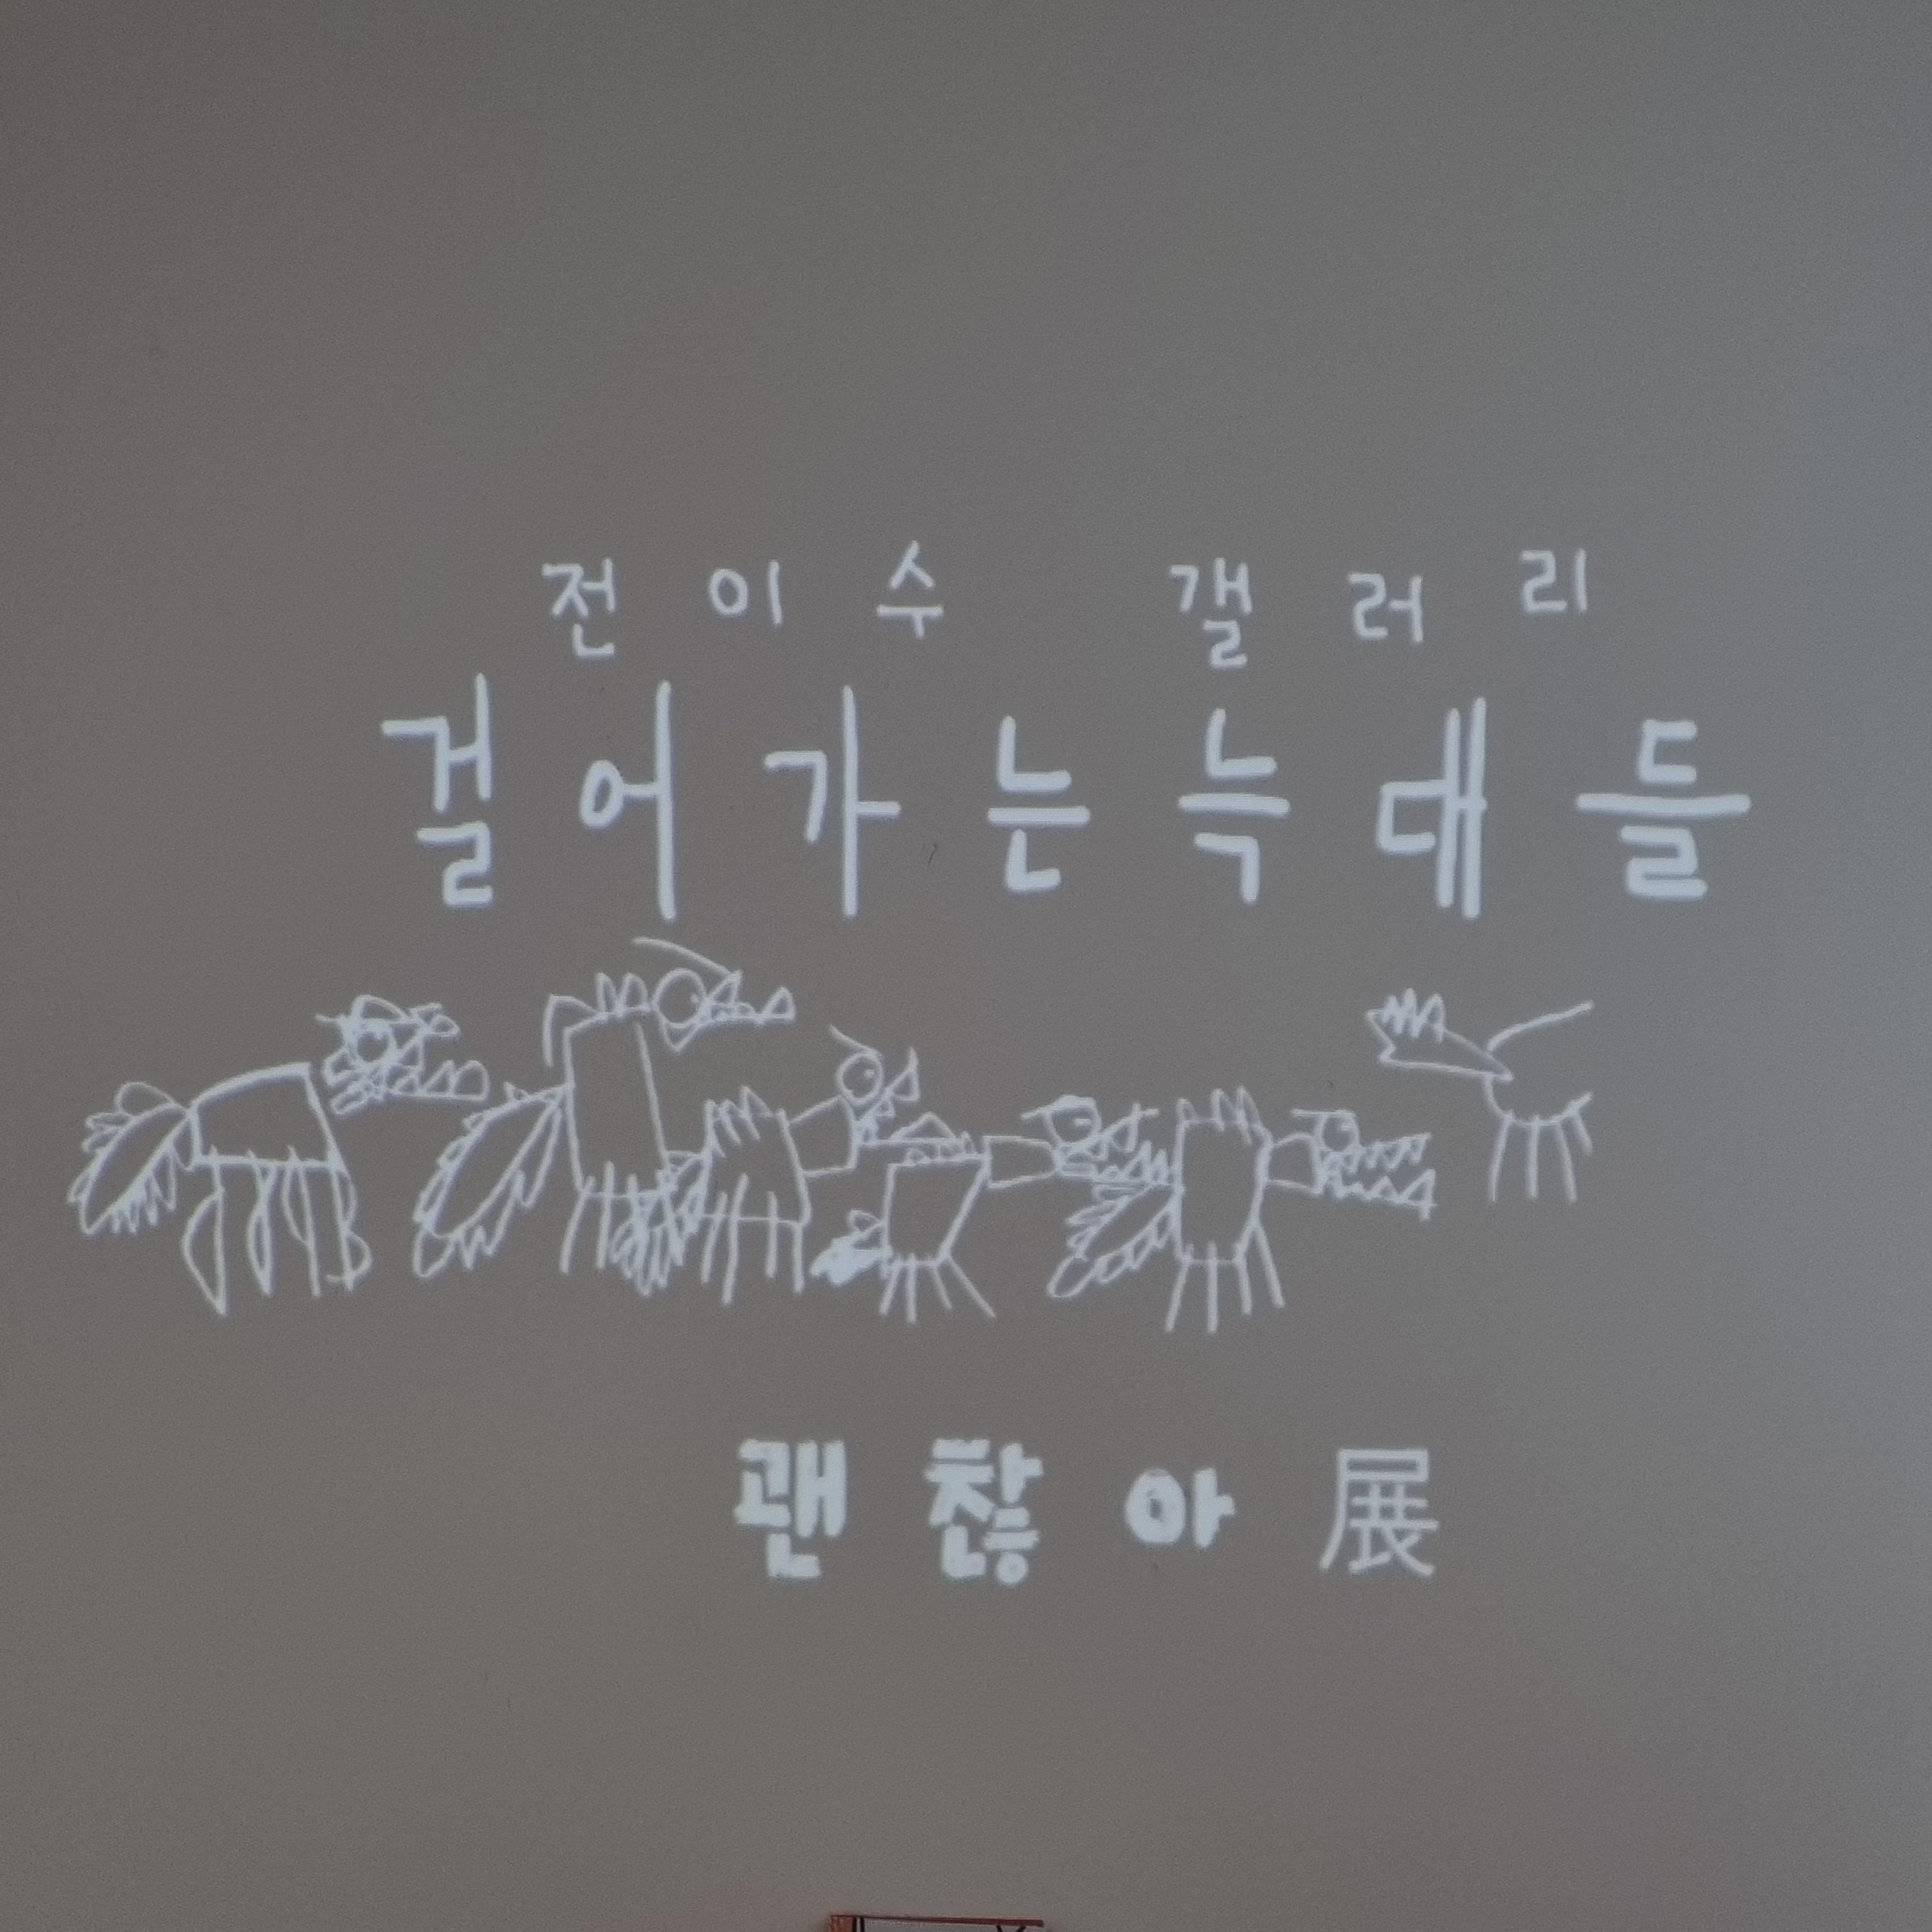 전이수 갤러리
걸어가는늑대들
괜찮아展